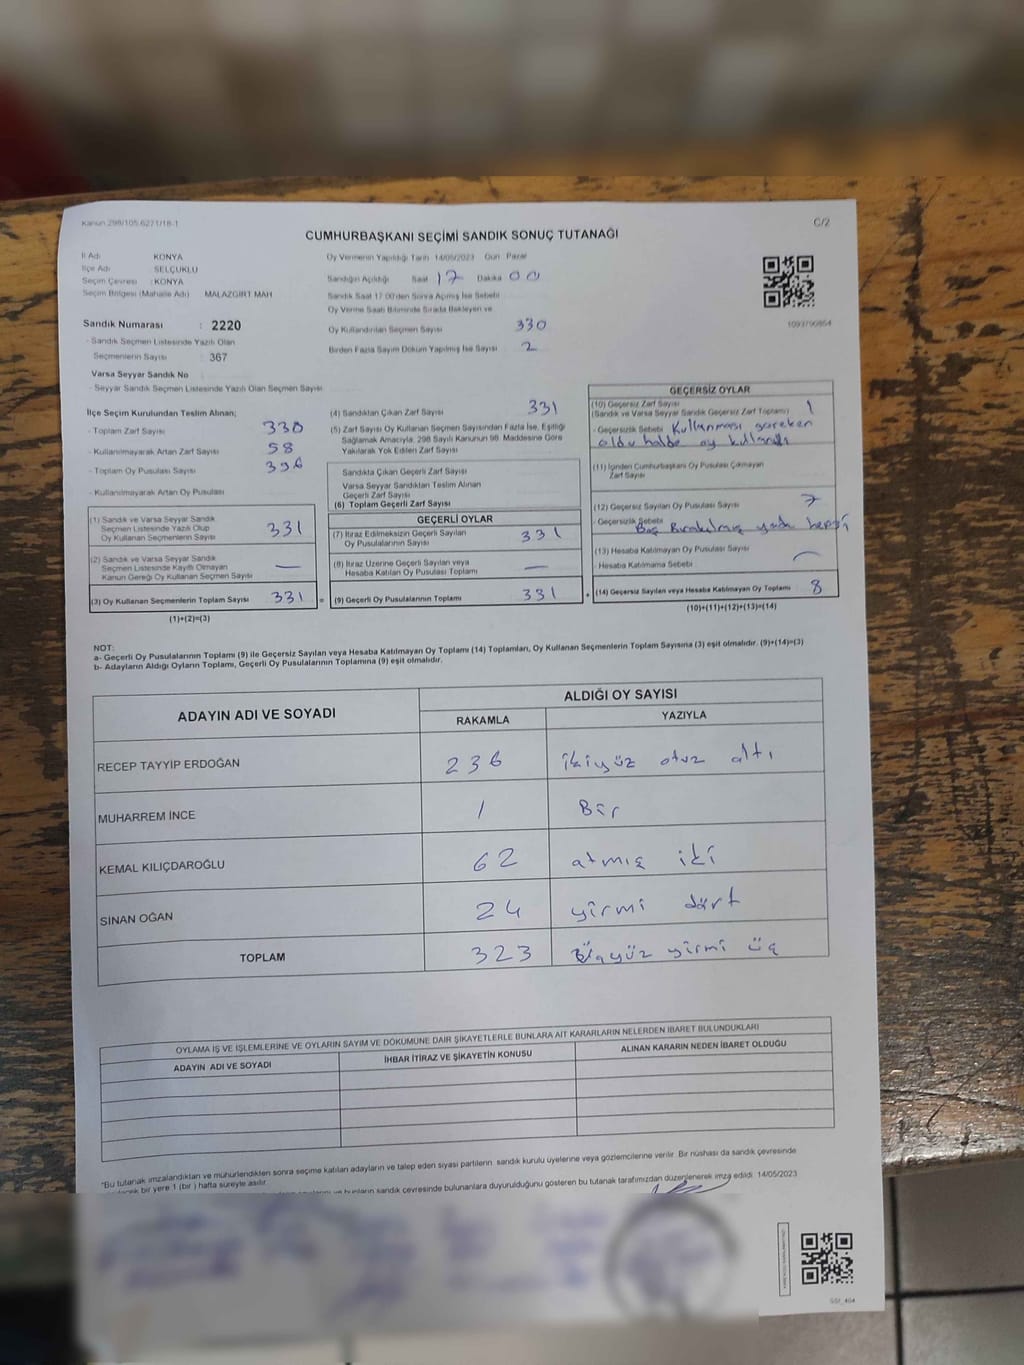 Kanun 298/105,6271/18-1
C/2
CUMHURBAŞKANI SEÇİMİ SANDIK SONUÇ TUTANAĞI
İl Adı KONYA
İlçe Adı SELÇUKLU
Seçim Çevresi : KONYA
Seçim Bölgesi (Mahalle Adı) MALAZGİRT MAH
Sandık Numarası : 2220
- Sandık Seçmen Listesinde Yazılı Olan
Seçmenlerin Sayısı : 367
Varsa Seyyar Sandık No
- Seyyar Sandık Seçmen Listesinde Yazılı Olan Seçmen Sayısı
Oy Vermenin Yapıldığı Tarih 14/05/2023 Gün Pazar
Sandığın Açıldığı Saat 17 Dakika 00
Sandık Saat 17:00'den Sonra Açmış İse Sebebi
Oy Verme Saati Bitiminde Sırada Bekleyen ve
Oy Kullandırılan Seçmen Sayısı 330
Birden Fazla Sayım Döküm Yapılmış İse Sayısı 2
1093790854
İlçe Seçim Kurulundan Teslim Alınan;
- Toplam Zarf Sayısı 330
- Kullanılmayarak Artan Zarf Sayısı 58
- Toplam Oy Pusulası Sayısı 396
- Kullanılmayarak Artan Oy Pusulası
(1) Sandık ve Varsa Seyyar Sandık
Seçmen Listesinde Yazılı Olup
Oy Kullanan Seçmenlerin Sayısı 331
(2) Sandık ve Varsa Seyyar Sandık
Seçmen Listesinde Kayıtlı Olmayan
Kanun Gereği Oy Kullanan Seçmen Sayısı —
(3) Oy Kullanan Seçmenlerin Toplam Sayısı 331 =
(1)+(2)=(3)
(4) Sandıktan Çıkan Zarf Sayısı 331
(5) Zarf Sayısı Oy Kullanan Seçmen Sayısından Fazla İse, Eşitliği
Sağlamak Amacıyla, 298 Sayılı Kanunun 98. Maddesine Göre
Yakılarak Yok Edilen Zarf Sayısı
Sandıkta Çıkan Geçerli Zarf Sayısı
Varsa Seyyar Sandıktan Teslim Alınan
Geçerli Zarf Sayısı
(6) Toplam Geçerli Zarf Sayısı
GEÇERLİ OYLAR
(7) İtiraz Edilmeksizin Geçerli Sayılan
Oy Pusulalarının Sayısı 331
(8) İtiraz Üzerine Geçerli Sayılan veya
Hesaba Katılan Oy Pusulası Toplamı —
(9) Geçerli Oy Pusulalarının Toplamı 331 +
GEÇERSİZ OYLAR
(10) Geçersiz Zarf Sayısı
(Sandık ve Varsa Seyyar Sandık Geçersiz Zarf Toplamı) 1
- Geçersizlik Sebebi Kullanması gereken
oldu halde oy kullandı
(11) İçinden Cumhurbaşkanı Oy Pusulası Çıkmayan
Zarf Sayısı
(12) Geçersiz Sayılan Oy Pusulası Sayısı 7
- Geçersizlik Sebebi
Boş Bırakılmış yada hepsi
(13) Hesaba Katılmayan Oy Pusulası Sayısı —
- Hesaba Katılmama Sebebi
(14) Geçersiz Sayılan veya Hesaba Katılmayan Oy Toplamı 8
(10)+(11)+(12)+(13)=(14)
NOT:
a- Geçerli Oy Pusulalarının Toplamı (9) ile Geçersiz Sayılan veya Hesaba Katılmayan Oy Toplamı (14) Toplamları, Oy Kullanan Seçmenlerin Toplam Sayısına (3) eşit olmalıdır. (9)+(14)=(3)
b- Adayların Aldığı Oyların Toplamı, Geçerli Oy Pusulalarının Toplamına (9) eşit olmalıdır.
ADAYIN ADI VE SOYADI
ALDIĞI OY SAYISI
RAKAMLA YAZIYLA
RECEP TAYYİP ERDOĞAN 236 ikiyüz otuz altı
MUHARREM İNCE 1 Bir
KEMAL KILIÇDAROĞLU 62 atmış iki
SİNAN OĞAN 24 yirmi dört
TOPLAM 323 üçyüz yirmi üç
OYLAMA İŞ VE İŞLEMLERİNE VE OYLARIN SAYIM VE DÖKÜMÜNE DAİR ŞİKAYETLERLE BUNLARA AİT KARARLARIN NELERDEN İBARET BULUNDUKLARI
ADAYIN ADI VE SOYADI İHBAR İTİRAZ VE ŞİKAYETİN KONUSU ALINAN KARARIN NEDEN İBARET OLDUĞU
"Bu tutanak imzalandıktan ve mühürlendikten sonra seçime katılan adayların ve talep eden siyasi partilerin sandık kurulu üyelerine veya gözlemcilerine verilir. Bir nüshası da sandık çevresinde
bir yere 1 (bir ) hafta süreyle asılır.
sandık çevresinde bulunanlara duyurulduğunu gösteren bu tutanak tarafımızdan düzenlenerek imza edildi. 14/05/2023